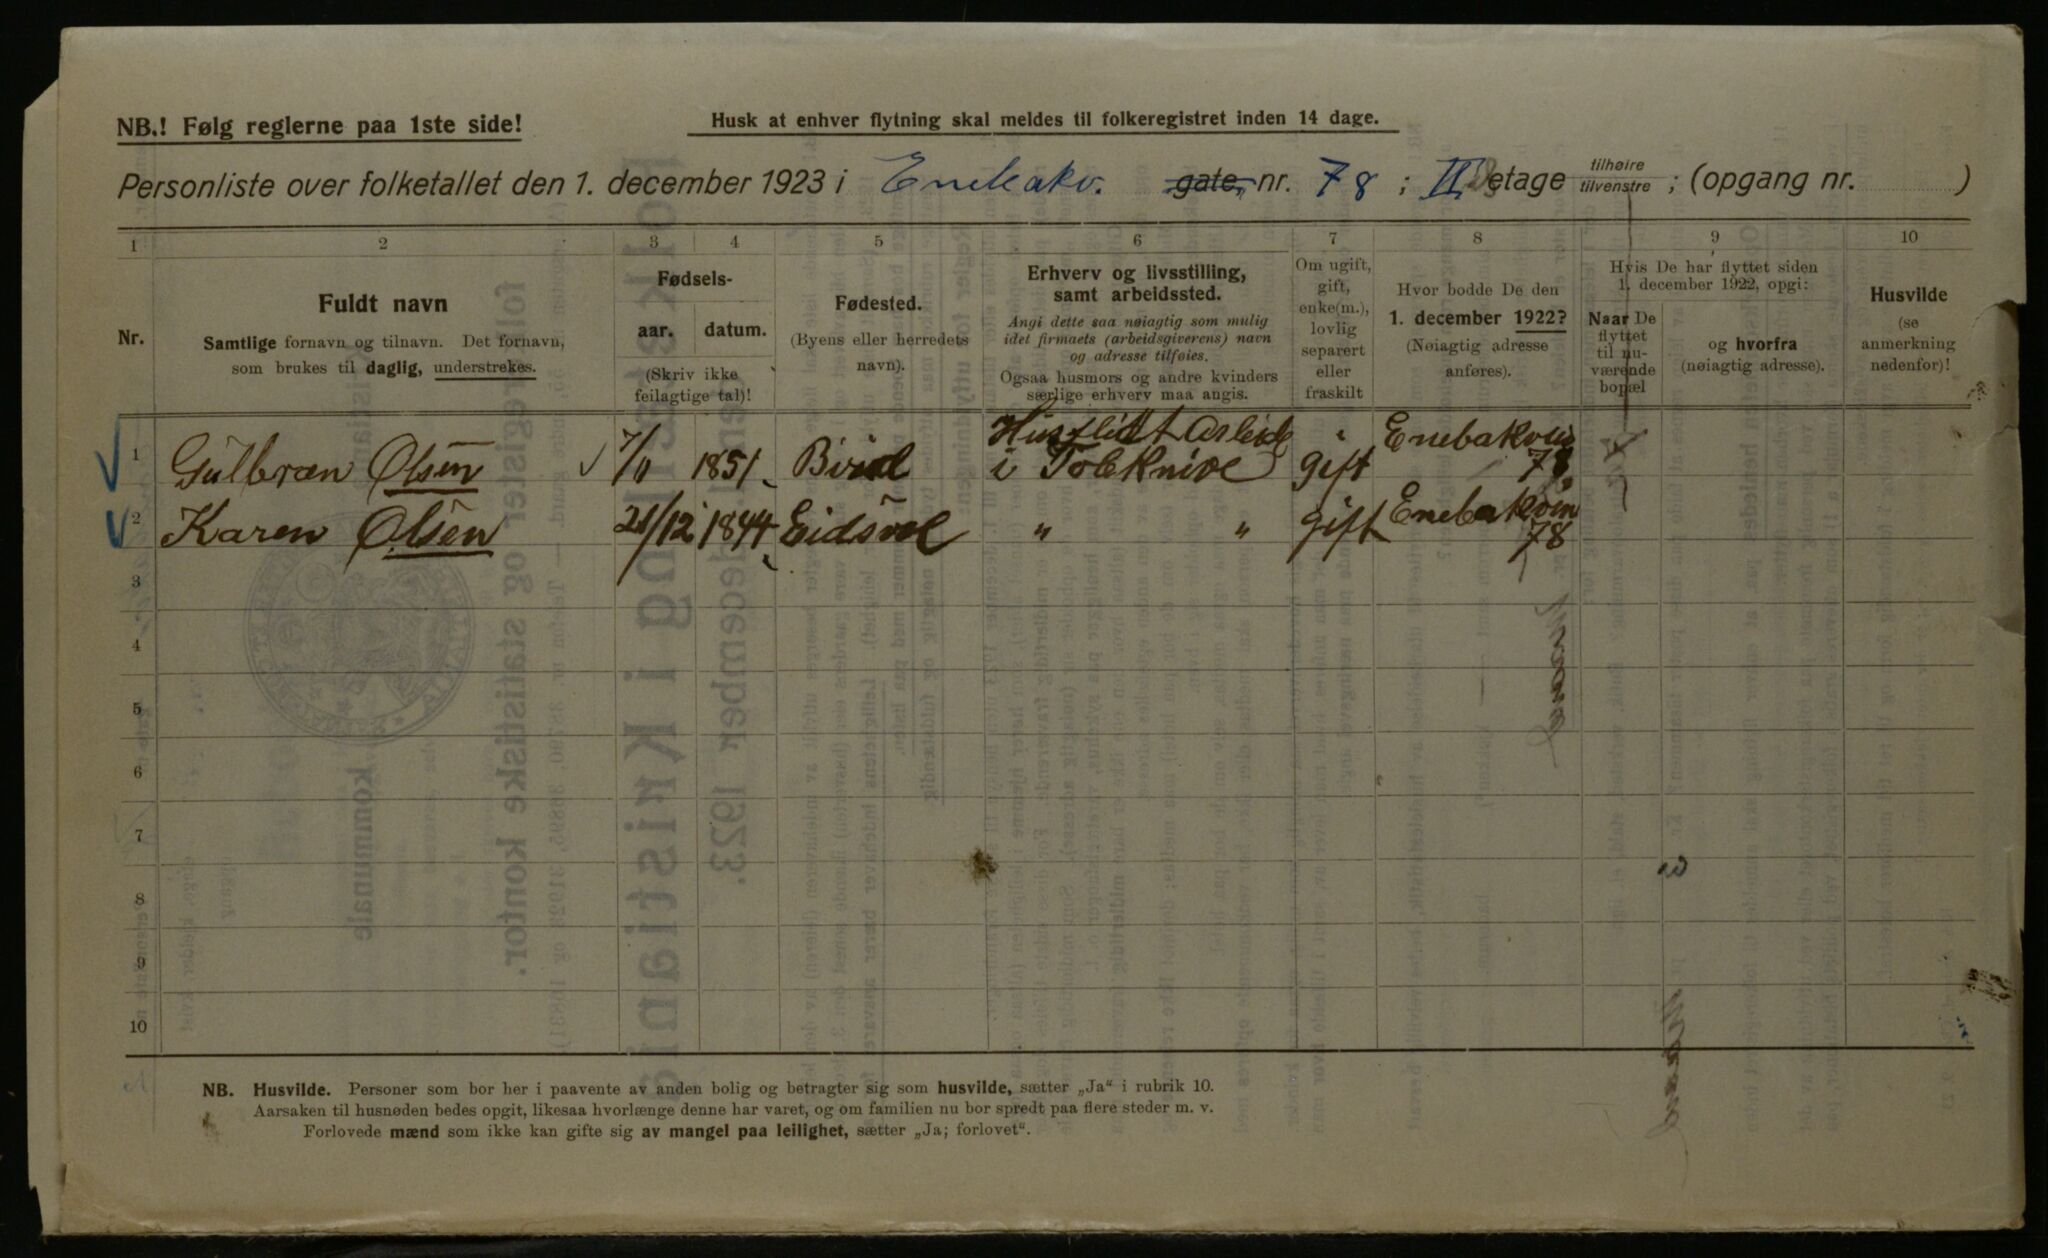 NB.! Følg reglerne paa 1ste side!
Husk at enhver flytning skal meldes til folkeregistret inden 14 dage.
Personliste over folketallet den 1. december 1923 i Enebakv. gate, nr. 78 ; II etage tilhøire tilvenstre ; (opgang nr. )
1 2 3 4 5 6 7 8 9 10
Nr.
Fuldt navn
Samtlige fornavn og tilnavn. Det fornavn,
som brukes til daglig, understrekes.
Fødsels-
aar. datum.
(Skriv ikke
feilagtige tal)!
Fødested.
(Byens eller herredets
navn).
Erhverv og livsstilling,
samt arbeidssted.
Angi dette saa nøiagtig som mulig
idet firmaets (arbeidsgiverens) navn
og adresse tilføies.
Ogsaa husmors og andre kvinders
særlige erhverv maa angis.
Om ugift,
gift,
enke(m.),
lovlig
separert
eller
fraskilt
Hvor bodde De den
1. december 1922?
(Nøiagtig adresse
anføres).
Hvis De har flyttet siden
1. december 1922, opgi:
Naar De
flyttet
til nu-
værende
bopæl
og hvorfra
(nøiagtig adresse).
Husvilde
(se
anmerkning
nedenfor)!
1 Gulbran Olsen 7/11 1851 Birid Husflidt Arbeide i Toleknive gift Enebakvein 78
2 Karen Olsen 21/12 1844 Eidsvol " " gift Enebakvein 78
3
4
5
6
7
8
9
10
NB. Husvilde. Personer som bor her i paavente av anden bolig og betragter sig som husvilde, sætter „Ja“ i rubrik 10.
Aarsaken til husnøden bedes opgit, likesaa hvorlænge denne har varet, og om familien nu bor spredt paa flere steder m. v.
Forlovede mænd som ikke kan gifte sig av mangel paa leilighet, sætter „Ja; forlovet“.